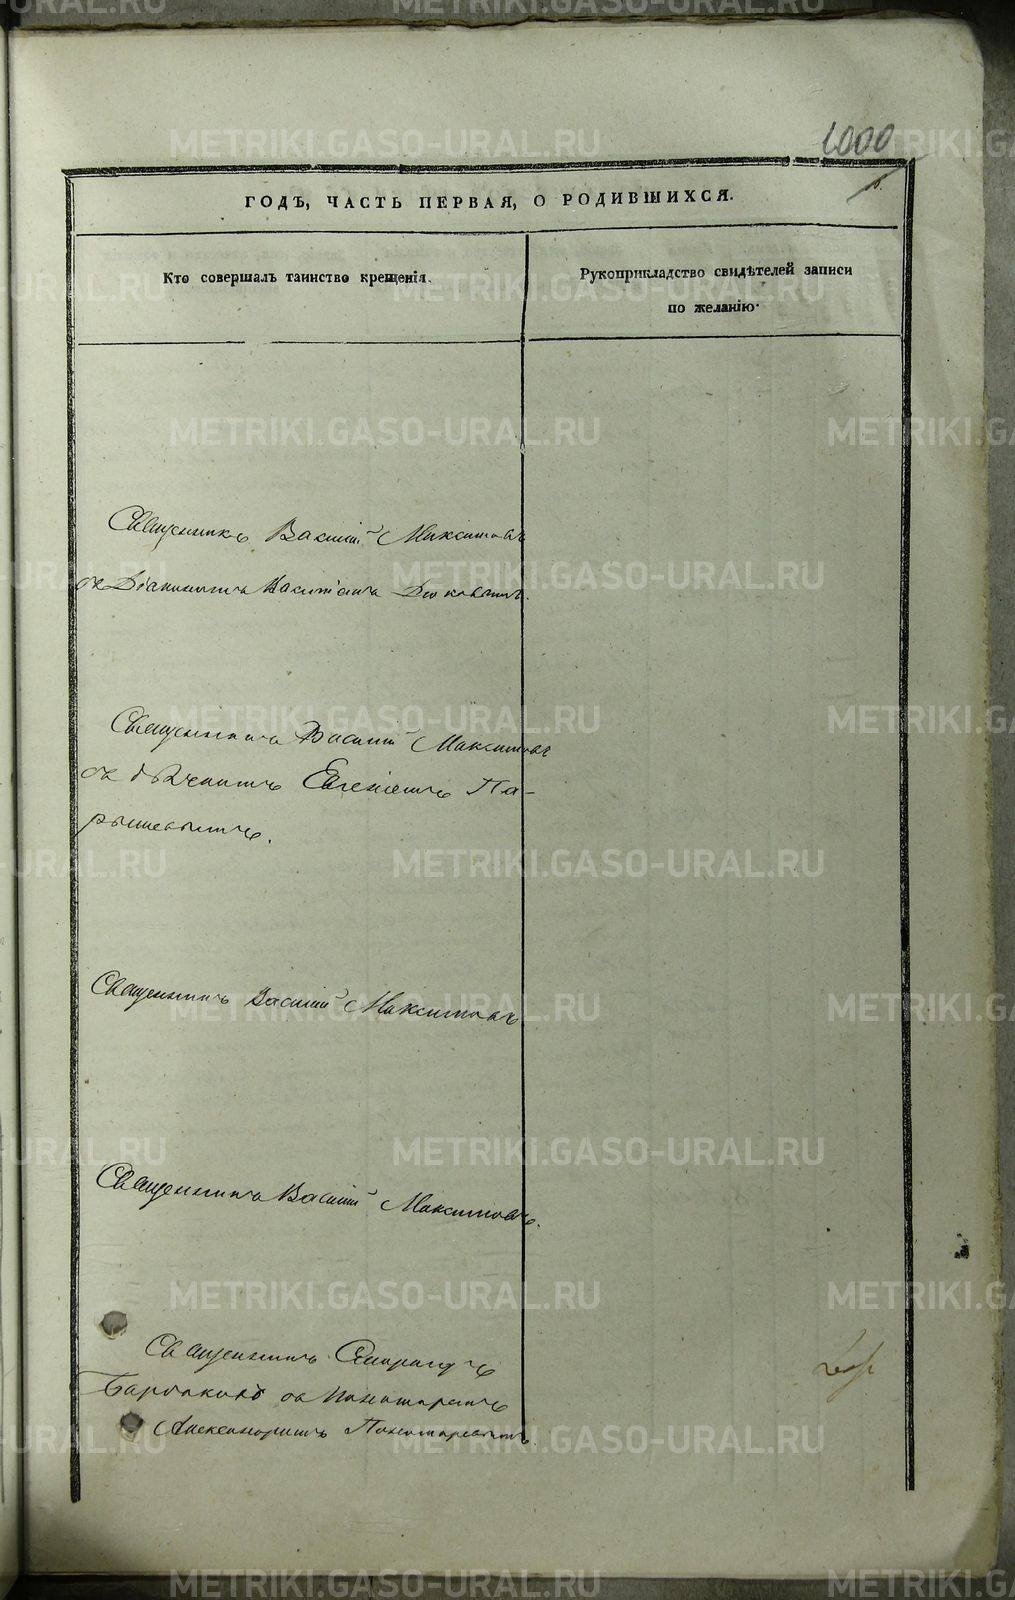 1000
ГОДЪ, ЧАСТЬ ПЕРВАЯ, О РОДИВШИХСЯ.
Кто совершалъ таинство крещенія.
Рукоприкладство свидѣтелей записи
по желанію.
Священникъ Василій Максимовъ
съ Діакономъ Василіемъ
Священникъ Василій Максимовъ
съ Евгеніемъ Па-
рышевымъ.
Священникъ Василій Максимовъ
Священникъ Василій Максимовъ.
Священникъ Спиридонъ
съ пономаремъ
Александромъ Пономаревымъ.
METRIKI.GASO-URAL.RU